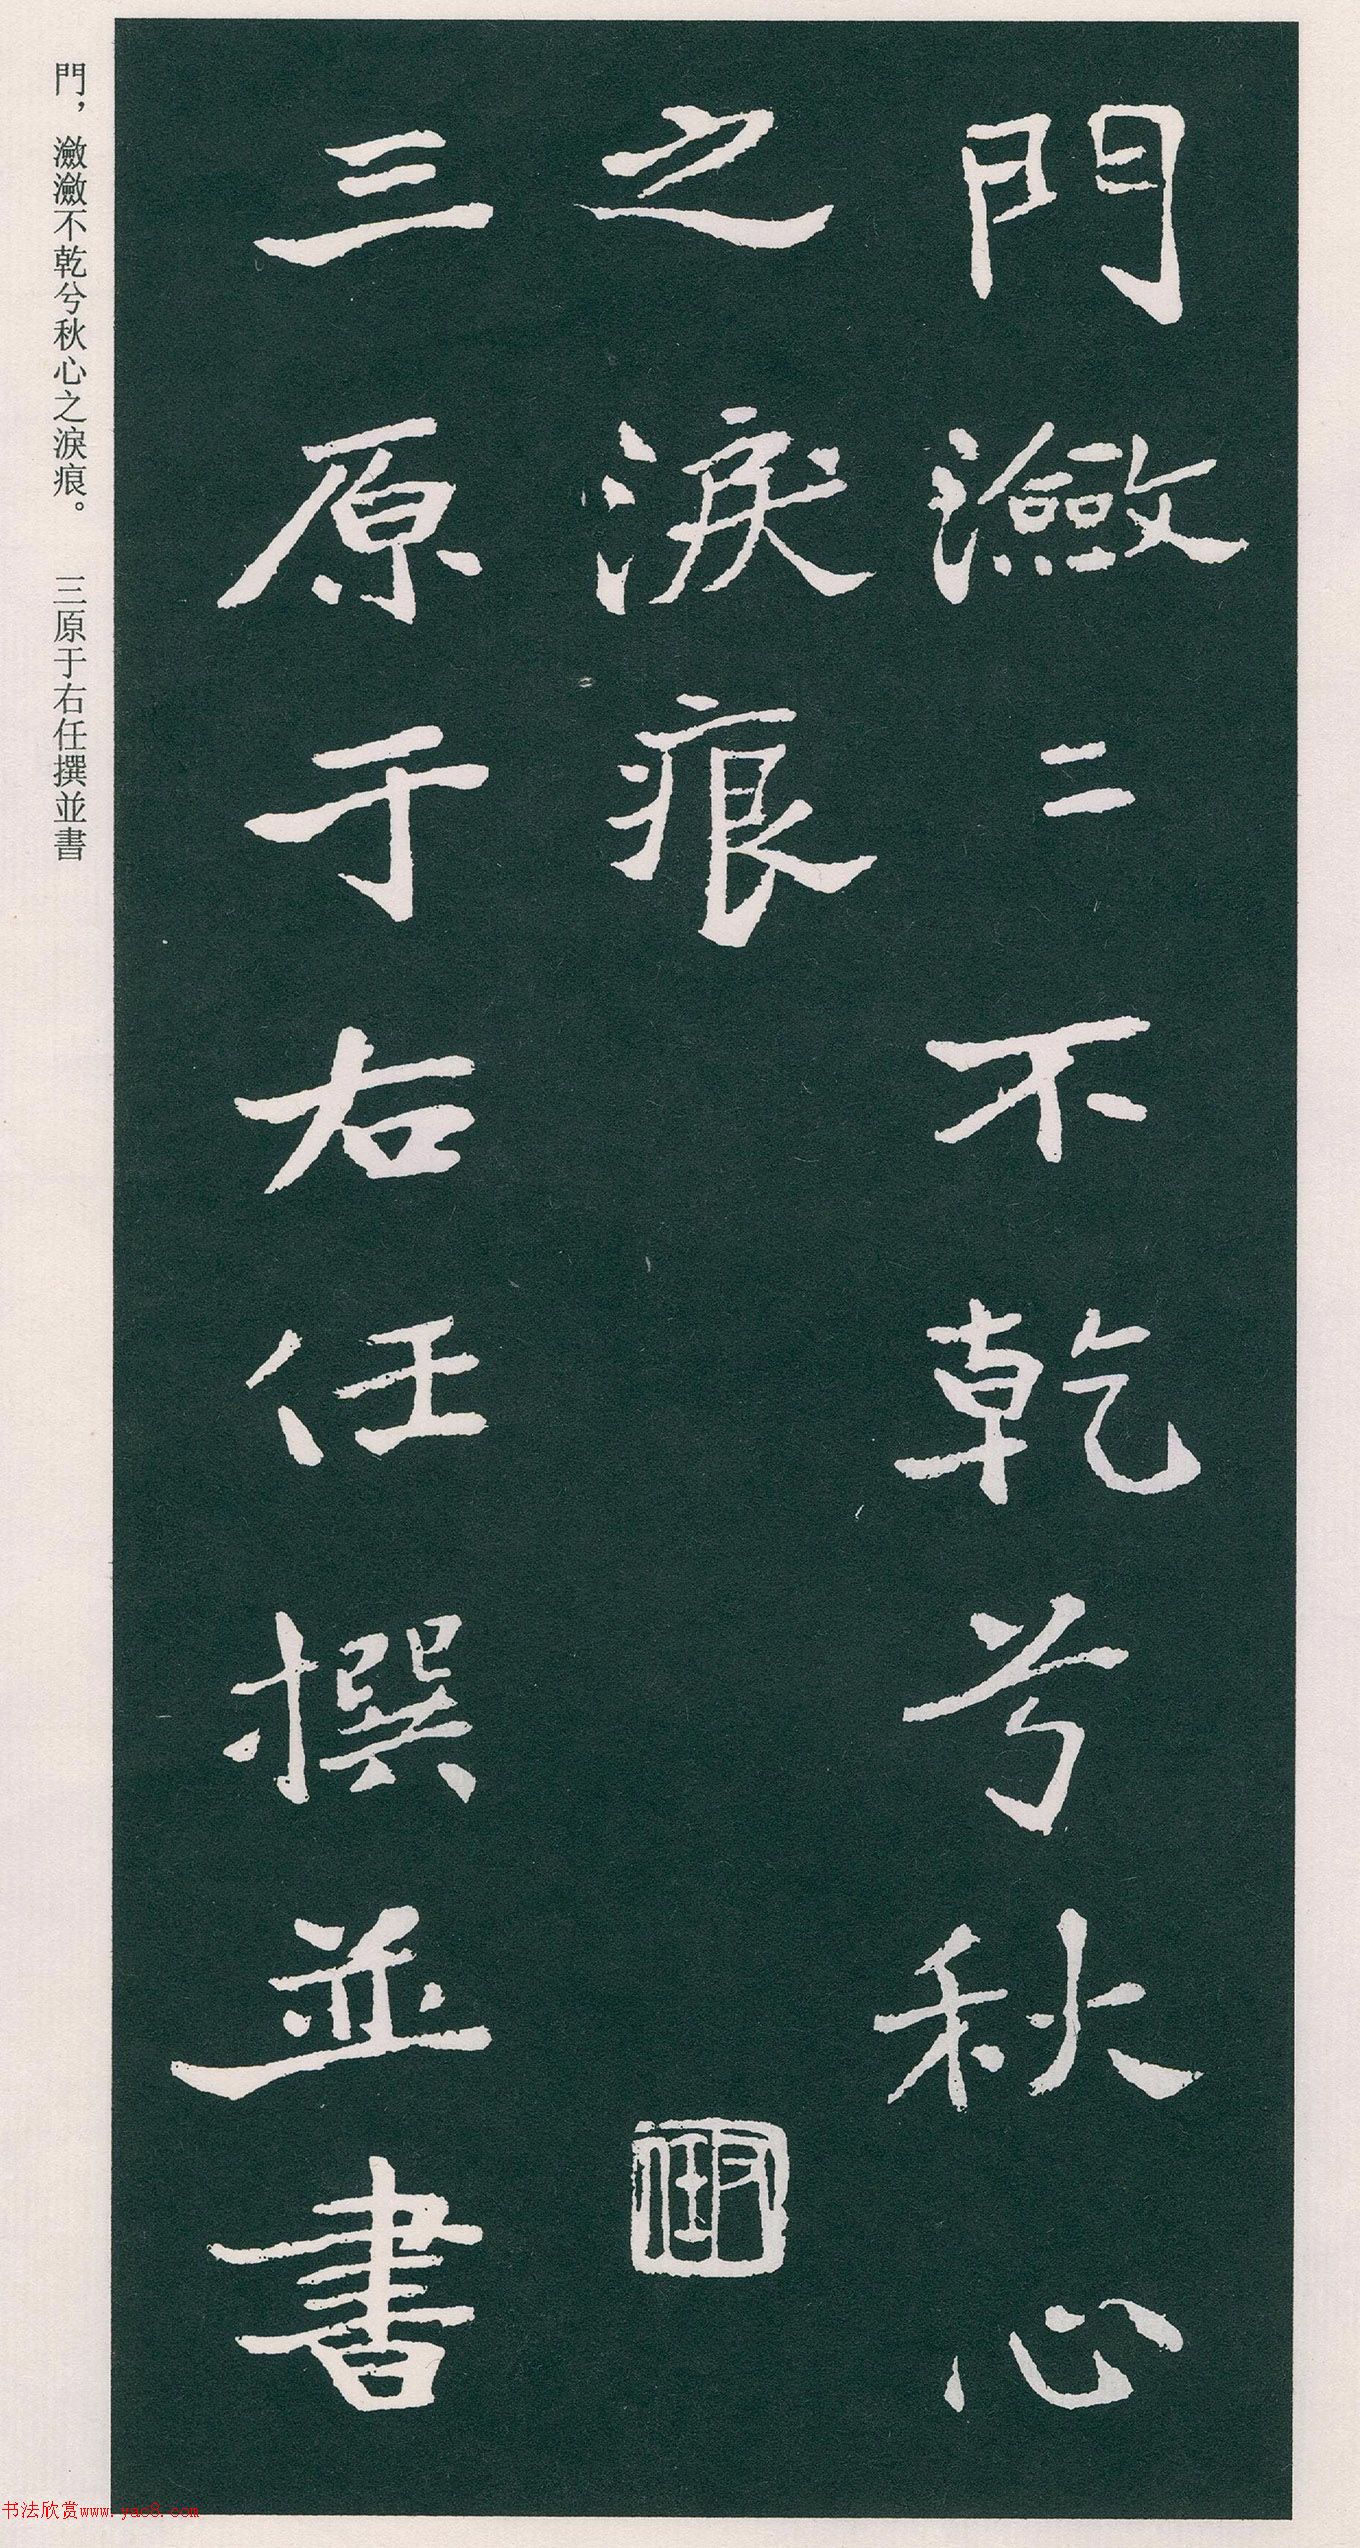 門瀲〻不乾兮秋心
之淚痕
三原于右任撰並書
右任
門，瀲瀲不乾兮秋心之淚痕。 三原于右任撰並書
书法欣赏www.yac8.com